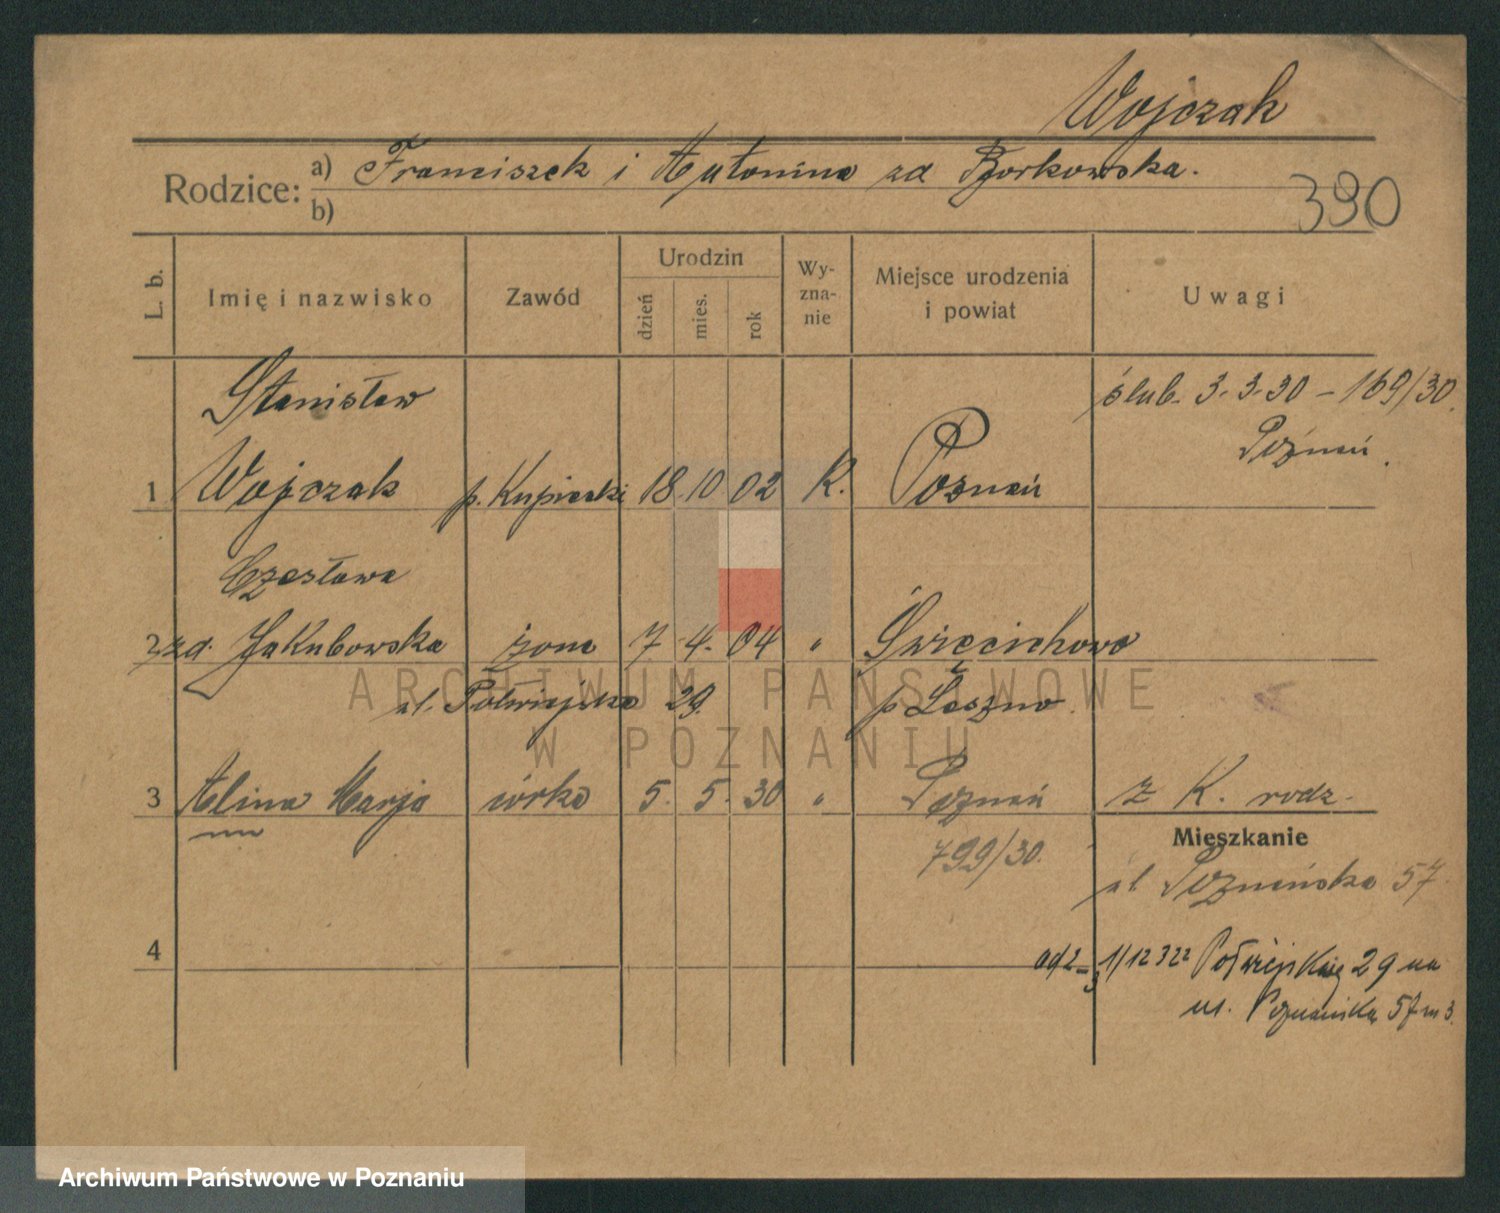 Wojczak
Rodzice: a) Franciszek i Antonina zd Borkowska.
b)
390
L. b.
Imię i nazwisko
Zawód
Urodzin
dzień
mies.
rok
Wy-
zna-
nie
Miejsce urodzenia
i powiat
Uwagi
Stanisław
ślub. 3.3.30 – 169/30.
Poznań.
1 Wojczak p. Kupiecki 18. 10 02 R. Poznań
Czesława
2 zd. Jakubowska żona 7. 4. 04 " Święciechowa
ul. Półwiejska 29. p Leszno.
ARCHIWUM PAŃSTWOWE
W POZNANIU
3 Alina Marja córka 5. 5. 30 " Poznań z K. rodz.
799/30.
Mieszkanie
ul. Poznańska 57.
4
1/12 322 Półwiejskiej 29 na
ul. Poznańską 57 m 3.
Archiwum Państwowe w Poznaniu